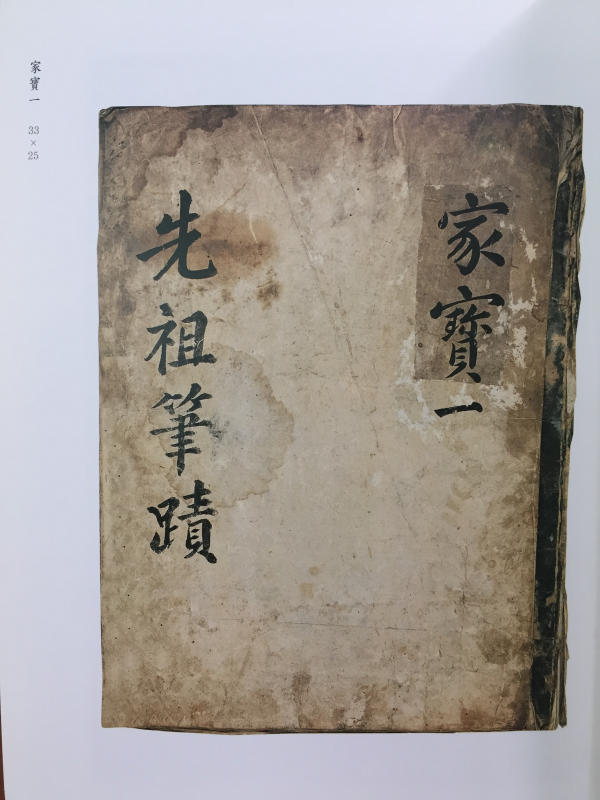 家寶一
先祖筆蹟
家寶一 33×25